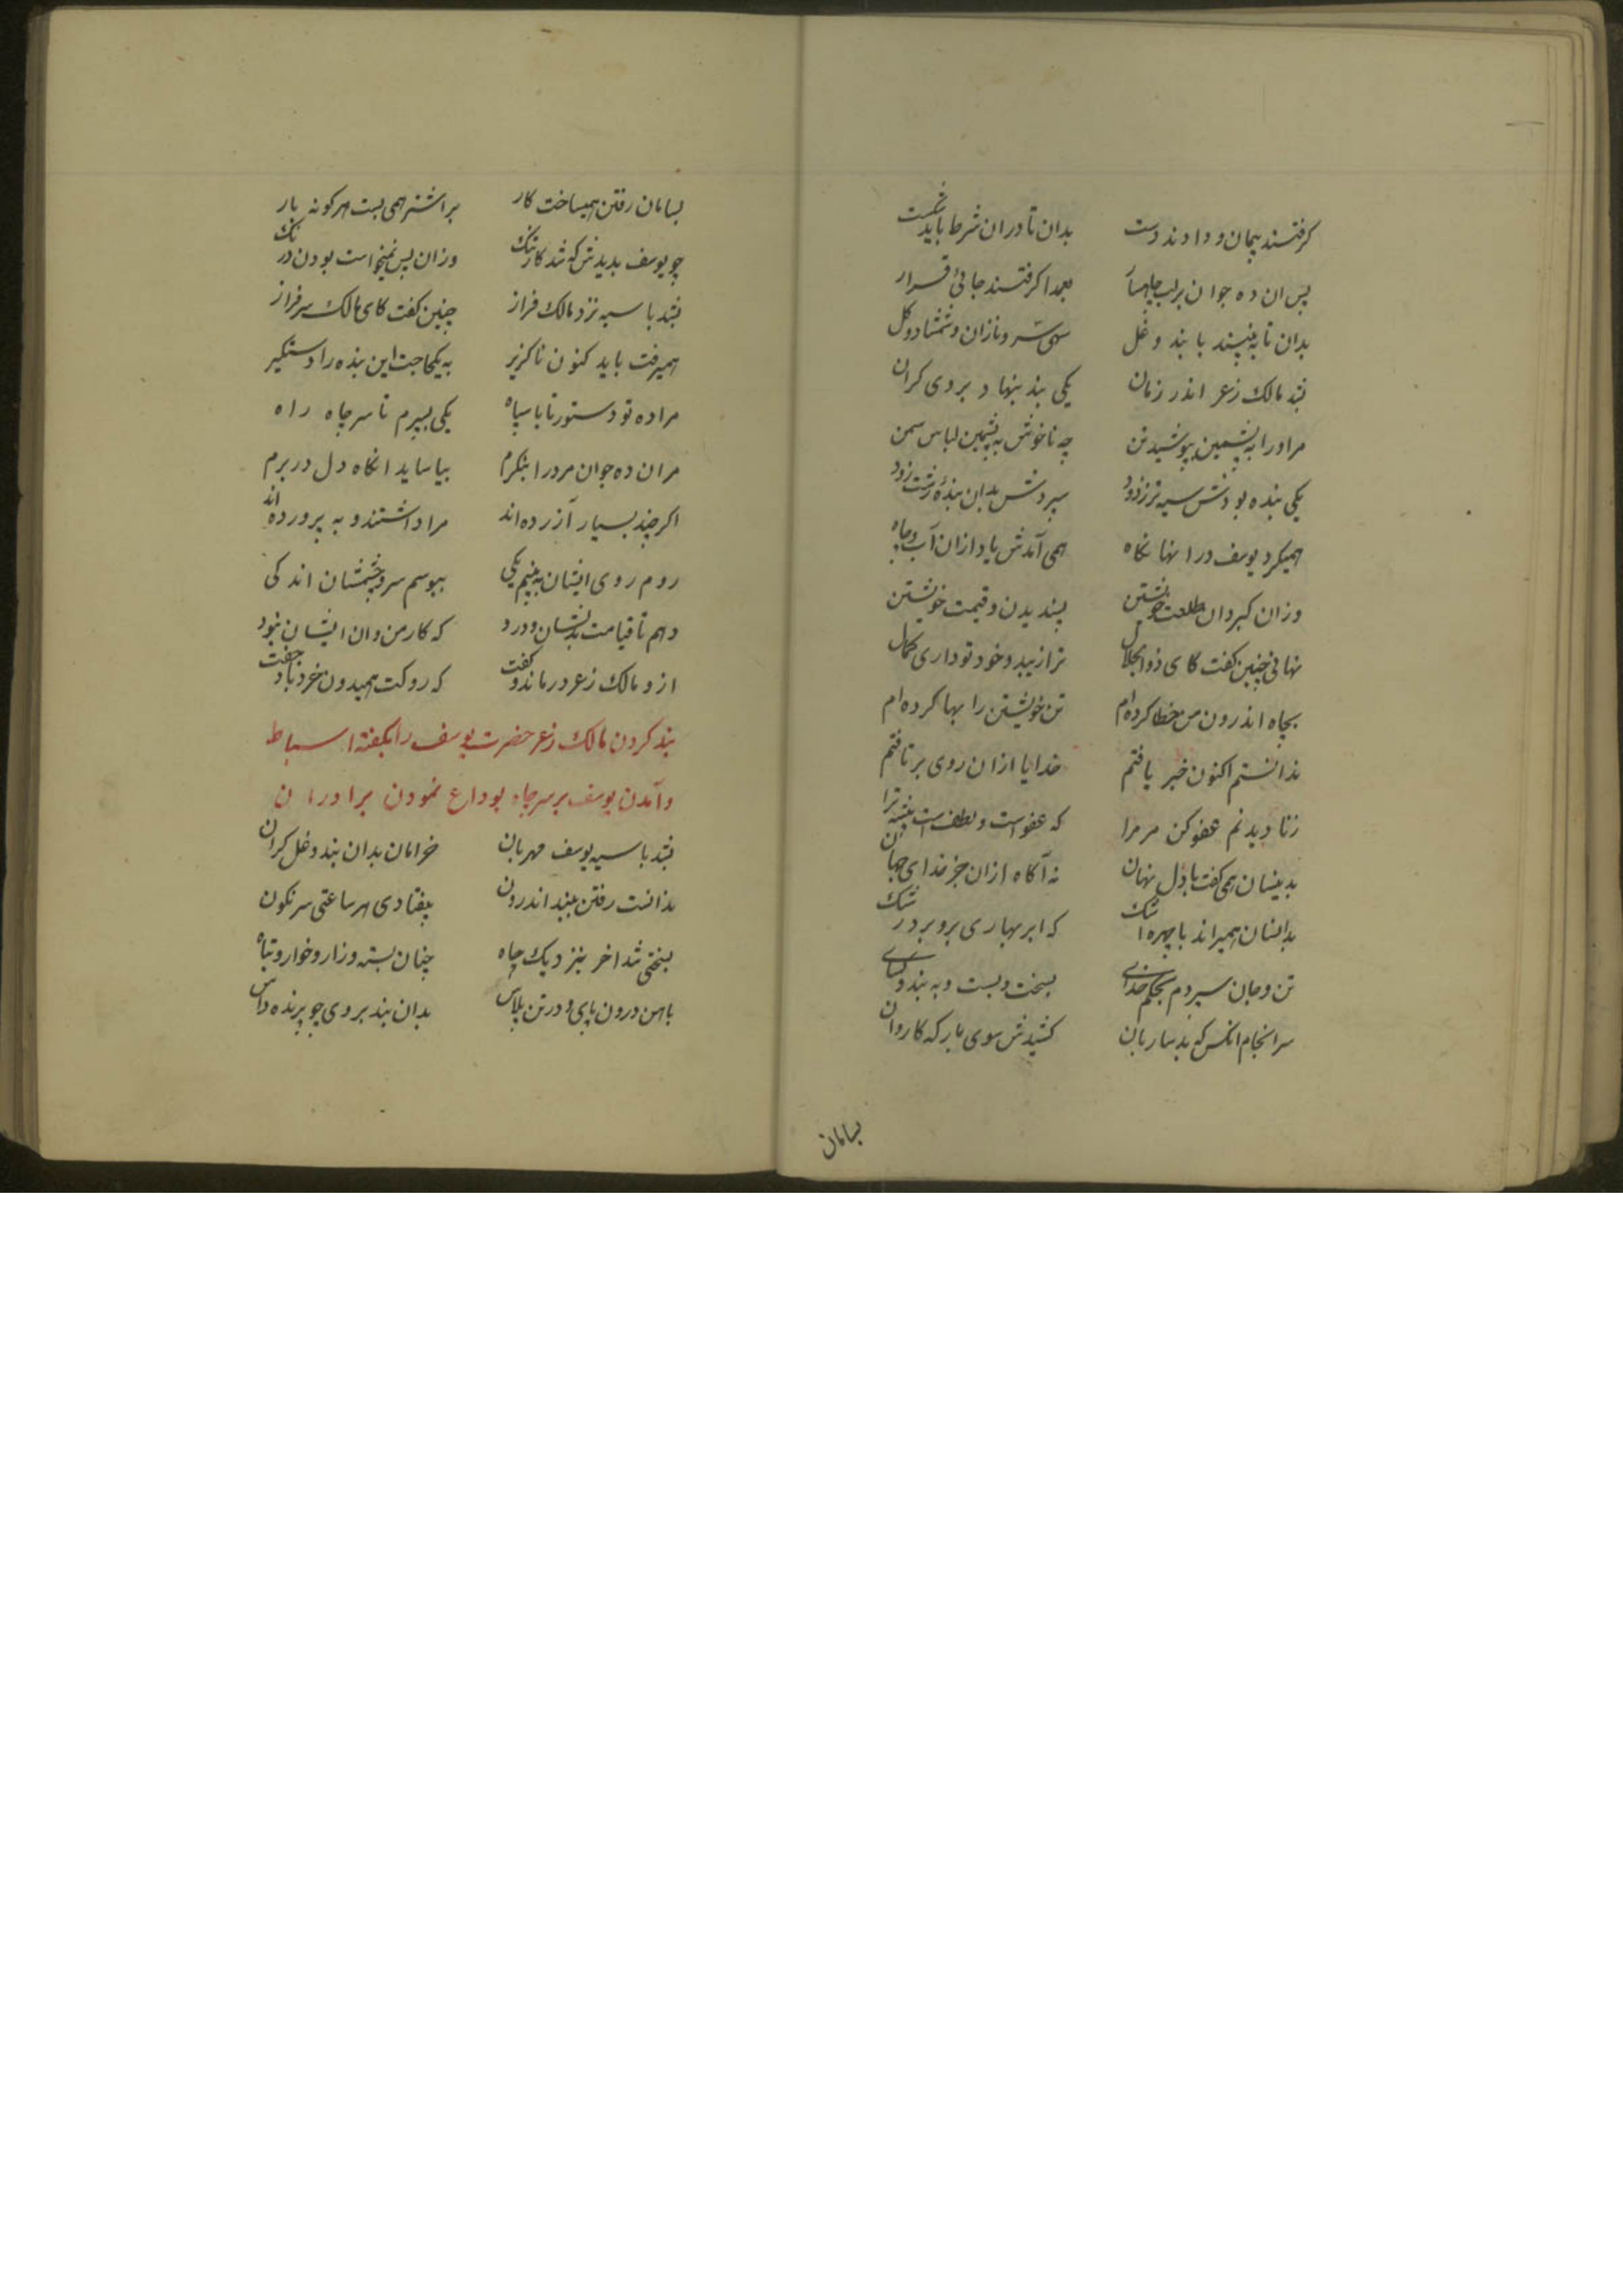 کرفتند پیمان و دادند دست بدان تا دران شرط باید نشست
پس ان ده جوان بر لب چاهسار بعمدا کرفتند جائی قرار
بدان تا به بینند با بند و غل سهی سرو نازان و شمشاد و کل
بشد مالک زعر اندر زمان یکی بند بنهاد بر وی کران
مر او را به پشمین بپوشید تن چه ناخوش به پشمین لباس سمن
یکی بنده بودش سیه تر ز دود سپردش بدان بنده زشت زود
همیکرد یوسف در انها نکاه همی آمدش یاد ازان آب و چاه
وزان کبر دان طلعت خویشتن پسندیدن و قیمت خویشتن
نهانی چنین کفت کای ذوالجلال ترا زیبد و خود تو داری کمال
بچاه اندرون من خطا کرده‌ام تن خویشتن را بها کرده‌ام
ندانستم اکنون خبر یافتم خدایا ازان روی بر تافتم
زنا دیدنم عفو کن مر مرا که عفو است و لطف است بیشه ترا
بدینسان همی کفت با دل نهان نه آکاه ازان جز خدای جهان
بدانسان همیراند با چهره اشک که ابر بهاری برو برد رشک
تن و جان سپردم بحکم خدای بسخت و ببست و به بند و کشای
سرانجام انکس که بد ساربان کشیدش سوی بارکه کاروان
بسامان
بسامان رفتن همیساخت کار بر اشتر همی بست هر کونه بار
چو یوسف بدیدش که شد کار تنک وزان پس نمیخواست بودن درنک
بشد با سیه نزد مالک فراز چنین کفت کای مالک سرفراز
همیرفت باید کنون ناکزیر به یکحاجت این بنده را دستکیر
مرا ده تو دستور تا با سیاه یکی بسپرم تا سر چاه راه
مر ان ده جوان مرد را بنکرم بیاساید انکاه دل در برم
اکر چند بسیار آزرده‌اند مرا داشتند و به پرورده‌اند
روم روی ایشان به بینم یکی ببوسم سر و چشمشان اندکی
دهم تا قیامت بدیشان درود که کار من و ان ایشان نبود
ازو مالک زعر درماند و کفت که رو کت همیدون خرد باد جفت
بند کردن مالک زعر حضرت یوسف را بکفته اسباط
و آمدن یوسف بر سر چاه بوداع نمودن برادران
بشد با سیه یوسف مهربان خرامان بدان بند و غل کران
ندانست رفتن ببند اندرون بیفتادی هر ساعتی سرنکون
بسختی شد اخر بنزدیک چاه چنان بسته و زار و خوار و تباه
باهن درون پای و در تن پلاس بدان بند بر وی چو پرنده داس